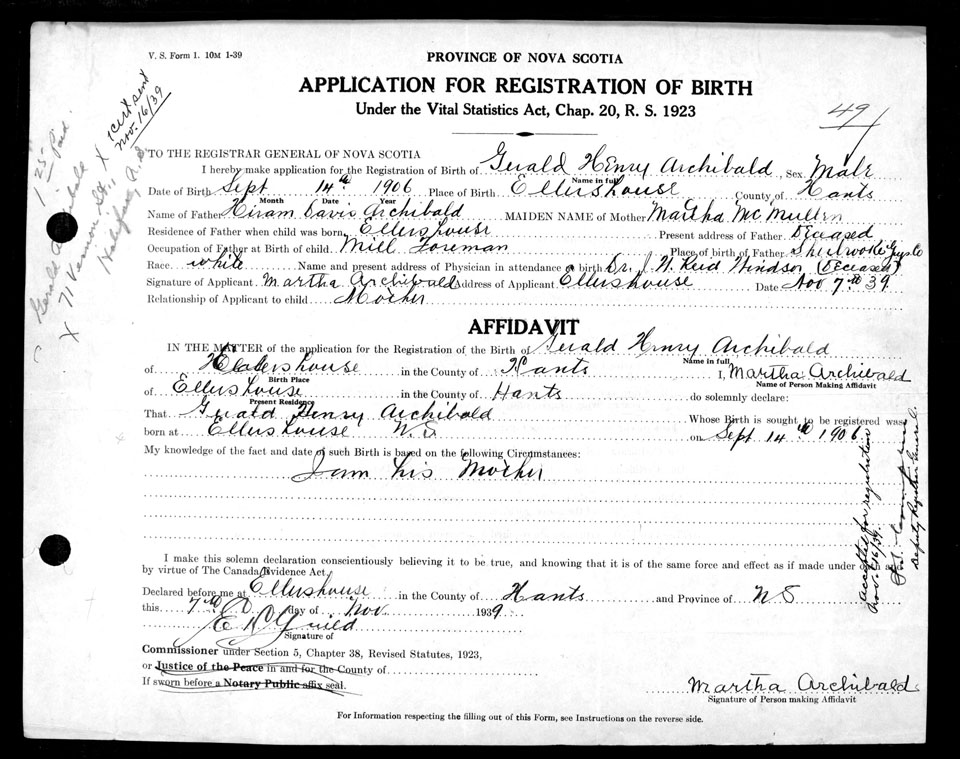 V. S. Form 1. 10M 1-39
PROVINCE OF NOVA SCOTIA
APPLICATION FOR REGISTRATION OF BIRTH
Under the Vital Statistics Act, Chap. 20, R. S. 1923
49
1.25 Paid.
Gerald Archibald
X 71 Vernon St.,
Halifax, N.S.
X Cert sent
Nov. 16/39
TO THE REGISTRAR GENERAL OF NOVA SCOTIA
I hereby make application for the Registration of Birth of Gerald Henry Archibald Sex Male
Name in full
Date of Birth Sept 14th 1906 Place of Birth Ellershouse County of Hants
Month Date Year
Name of Father Hiram Davis Archibald MAIDEN NAME of Mother Martha McMullin
Residence of Father when child was born, Ellershouse Present address of Father Deceased
Occupation of Father at Birth of child. Mill Foreman Place of birth of Father. Sherbrooke Guys Co
Race. white Name and present address of Physician in attendance at birth Dr. J. W. Reid Windsor (Deceased)
Signature of Applicant Martha Archibald Address of Applicant Ellershouse Date Nov 7th 39
Relationship of Applicant to child Mother
AFFIDAVIT
IN THE MATTER of the application for the Registration of the Birth of Gerald Henry Archibald
Name in full
of Ellershouse in the County of Hants I, Martha Archibald
Birth Place Name of Person Making Affidavit
of Ellershouse in the County of Hants do solemnly declare:
Present Residence
That Gerald Henry Archibald Whose Birth is sought to be registered was
born at Ellershouse N.S. on Sept 14th 1906
My knowledge of the fact and date of such Birth is based on the following Circumstances:
I am his Mother
I make this solemn declaration conscientiously believing it to be true, and knowing that it is of the same force and effect as if made under oath and
by virtue of The Canada Evidence Act.
Declared before me at Ellershouse in the County of Hants and Province of N S
this 7th day of Nov 1939
E R Guild
Signature of
Commissioner under Section 5, Chapter 38, Revised Statutes, 1923,
or Justice of the Peace in and for the County of
If sworn before a Notary Public affix seal.
Martha Archibald
Signature of Person making Affidavit
For Information respecting the filling out of this Form, see Instructions on the reverse side.
Accepted for registration
Nov. 16/39.
Deputy Registrar General